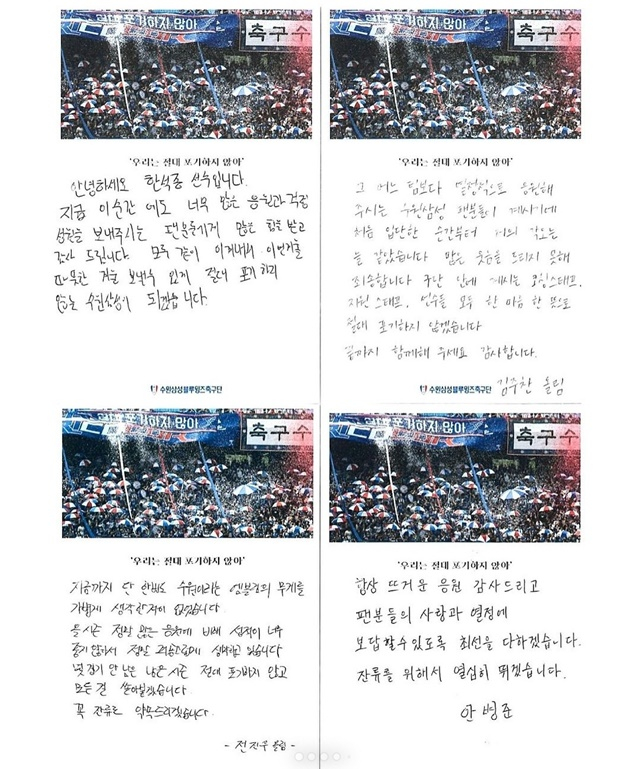 포기하지 않아
축구수
'우리는 절대 포기하지 않아'
안녕하세요 한석종 선수입니다.
지금 이순간에도 너무 많은 응원과 걱정
성원을 보내주시는 팬분들에게 많은 힘을 받고
감사 드립니다. 모두 같이 이겨내서 이번시즌
절대 포기하지
않는 수원삼성이 되겠습니다.
수원삼성블루윙즈축구단
포기하지 않아
축구수
'우리는 절대 포기하지 않아'
그 어느 팀보다 열정적으로 응원해
주시는 수원삼성 팬분들이 계시기에
처음 입단한 순간부터 저의 각오는
늘 같았습니다 밝은 웃음을 드리지 못해
죄송합니다 구단 안에 계시는 코칭스태프,
지원스태프, 선수들 모두 한 마음 한 뜻으로
절대 포기하지 않겠습니다
끝까지 함께해 주세요 감사합니다.
김주찬 올림
수원삼성블루윙즈축구단
포기하지 않아
축구수
'우리는 절대 포기하지 않아'
지금까지 단 한번도 수원이라는 엠블럼의 무게를
가볍게 생각한적이 없었습니다
올시즌 정말 많은 응원에 비해 성적이 너무
좋지 않아서 정말 있습니다
몇 경기 안 남은 시즌 절대 포기하지 않고
모든걸 쏟아붓겠습니다
꼭 잔류로 약속드리겠습니다.
- 전진우 올림 -
포기하지 않아
축구수
'우리는 절대 포기하지 않아'
항상 뜨거운 응원 감사드리고
팬분들의 사랑과 열정에
보답할수있도록 최선을 다하겠습니다.
잔류를 위해서 열심히 뛰겠습니다.
안병준